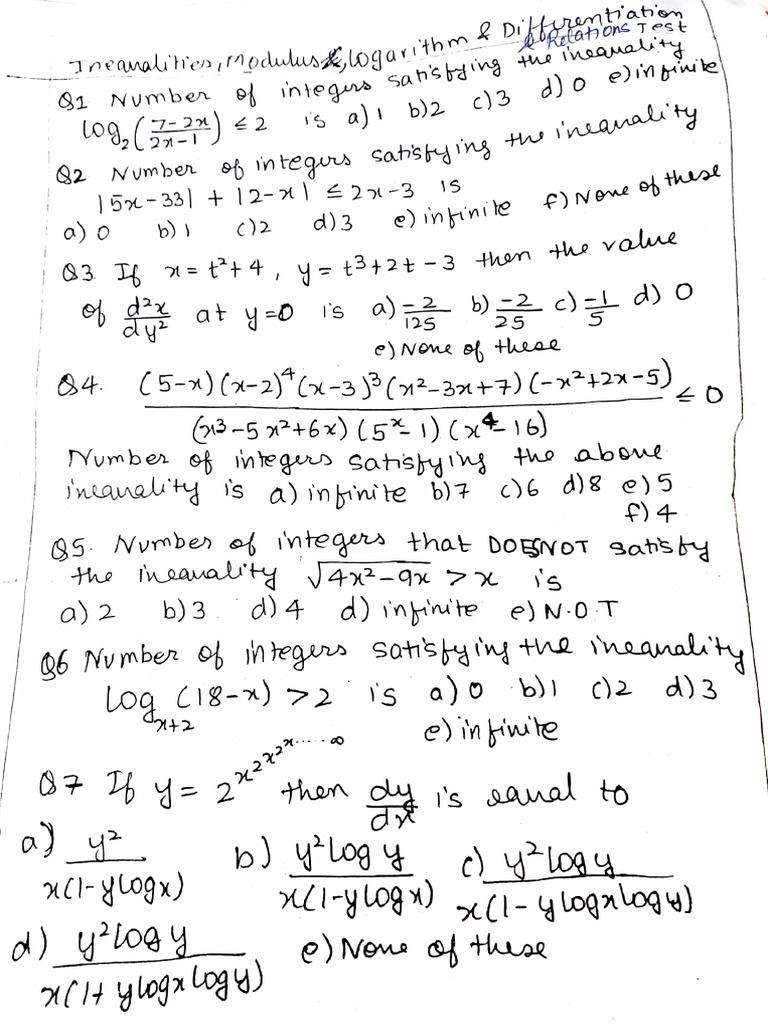 Inequalities, Modulus, Logarithm & Differentiation
& Relations Test
Q1 Number of integers satisfying the inequality
log₂((7-2x)/(2x-1)) ≤ 2 is a) 1 b) 2 c) 3 d) 0 e) infinite
Q2 Number of integers satisfying the inequality
|5x-33| + |2-x| ≤ 2x-3 is
a) 0 b) 1 c) 2 d) 3 e) infinite f) None of these
Q3 If x = t²+4, y = t³+2t-3 then the value
of d²x/dy² at y=0 is a) -2/125 b) -2/25 c) -1/5 d) 0
e) None of these
Q4. ((5-x)(x-2)⁴(x-3)³(x²-3x+7)(-x²+2x-5))/((x³-5x²+6x)(5ˣ-1)(x⁴-16)) ≤ 0
Number of integers satisfying the above
inequality is a) infinite b) 7 c) 6 d) 8 e) 5
f) 4
Q5. Number of integers that DOESNOT satisfy
the inequality √(4x²-9x) > x is
a) 2 b) 3 d) 4 d) infinite e) N.O.T
Q6 Number of integers satisfying the inequality
log_(x+2) (18-x) > 2 is a) 0 b) 1 c) 2 d) 3
e) infinite
Q7 If y = 2^x^2^x^2^x.....∞ then dy/dx is equal to
a) y²/(x(1-ylogx)) b) y²logy/(x(1-ylogx)) c) y²logy/(x(1-ylogxlogy))
d) y²logy/(x(1+ylogxlogy)) e) None of these